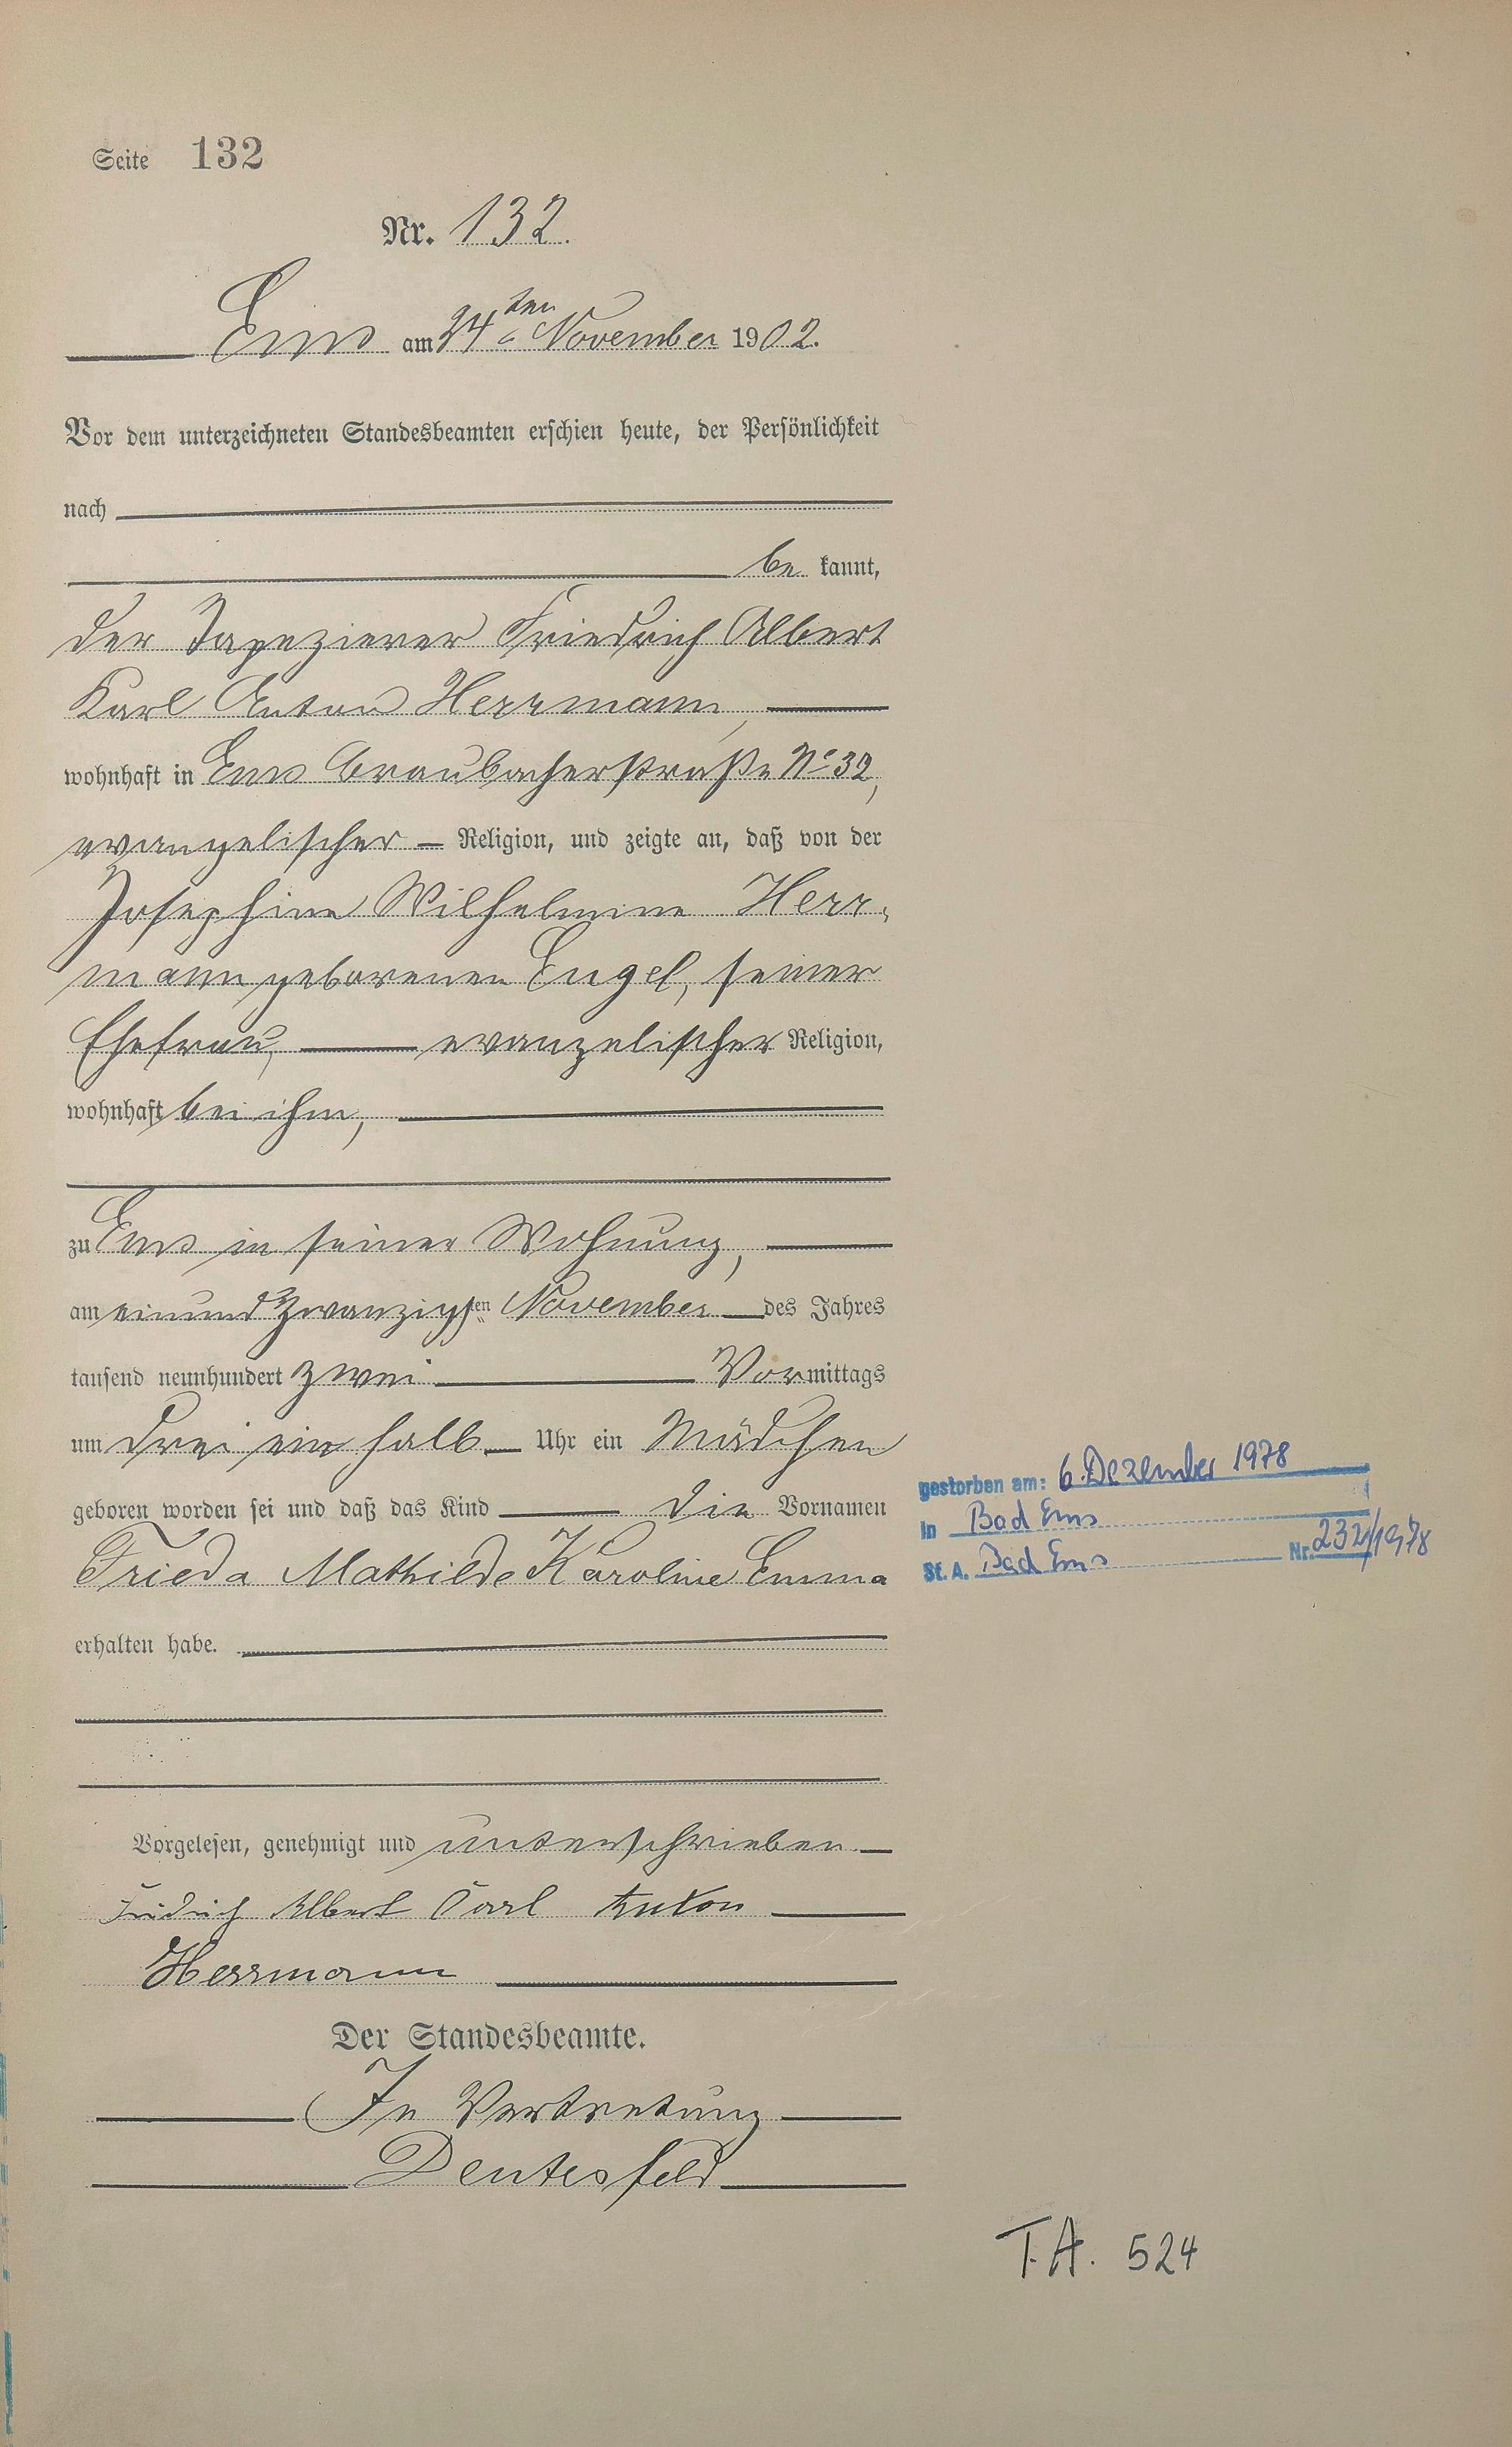 Seite 132
Nr. 132.
Ems am 24ten November 1902.
Vor dem unterzeichneten Standesbeamten erschien heute, der Persönlichkeit
nach
be kannt,
der Tapezierer Friedrich Albert
Karl Anton Herrmann,
wohnhaft in Ems Braubacherstraße No 32,
evangelischer Religion, und zeigte an, daß von der
Josephine Wilhelmine Herr-
mann geborenen Engel, seiner
Ehefrau, evangelischer Religion,
wohnhaft bei ihm,
zu Ems in seiner Wohnung,
am einundzwanzigsten November des Jahres
tausend neunhundert zwei Vormittags
um drei ein halb Uhr ein Mädchen
geboren worden sei und daß das Kind die Vornamen
Frieda Mathilde Karoline Emma
erhalten habe.
gestorben am: 6. Dezember 1978
in Bad Ems
St. A. Bad Ems Nr. 232/1978
Vorgelesen, genehmigt und unterschrieben.
Friedrich Albert Carl Anton
Herrmann
Der Standesbeamte.
In Vertretung
T.A. 524